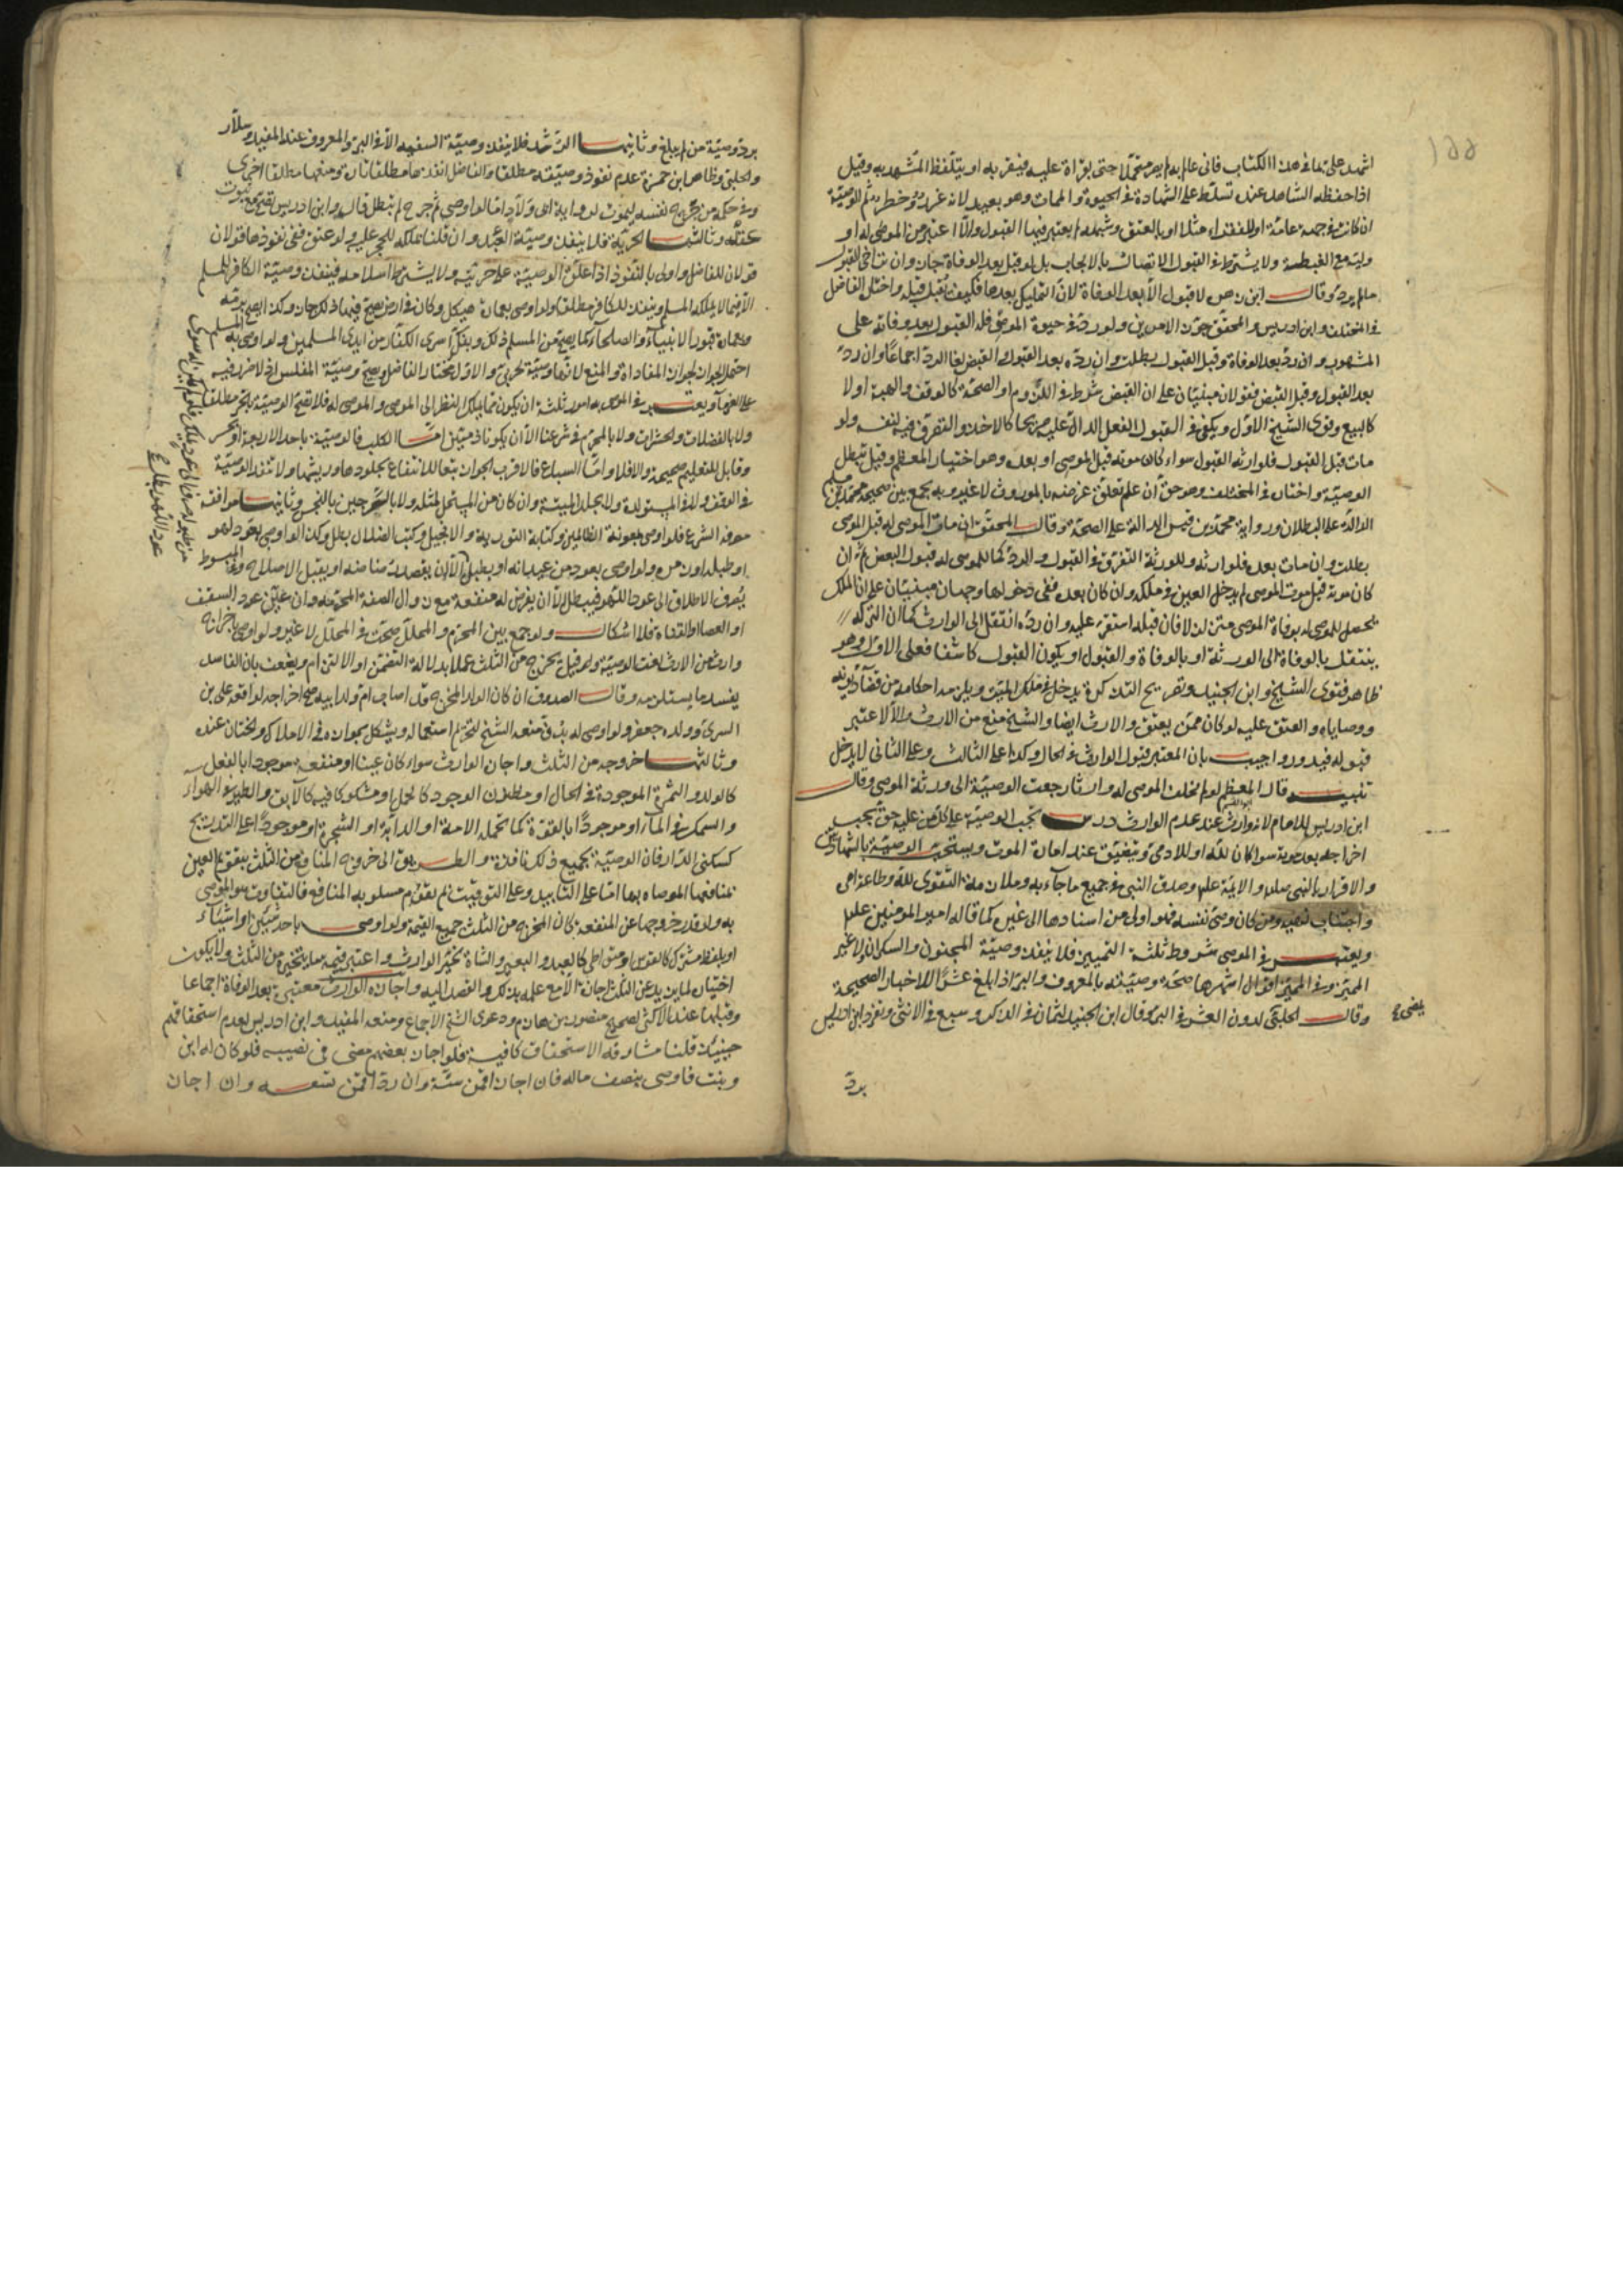 اشهد على بما في هذا الكتاب فاني عالم به لم يصر متحملا حتى يقراه عليه فيقر به او يتلفظ المشهد به وقيل
اذا حفظه الشاهد عنده تسلط على الشهادة في الحيوة والممات وهو بعيد لانه غرر وخطر ثم الوصية
ان كانت في جهة عامة او للفقراء مثلا او بالعتق وشبهه لم يعتبر فيها القبول والا اعتبر من الموصى له او
وليه مع الغبطة ولا يشترط في القبول الاتصال بالايجاب بل لو قبل بعد الوفاة جاز وان تراخى القبول
ما لم يرد وقال ابن زهرة لا قبول الا بعد الوفاة لان التمليك بعدها فكيف يقبل قبله واختاره الفاضل
في المختلف وابن ادريس والمحقق جوزا الامرين ولو رد في حيوة الموصي فله القبول بعد وفاته على
المشهور وان رد بعد الوفاة وقبل القبول بطلت وان رده بعد القبول والقبض لغا الرد اجماعا وان رد
بعد القبول وقبل القبض فقولان مبنيان على ان القبض شرط في اللزوم او الصحة كالوقف والهبة او لا
كالبيع وقوى الشيخ الاول ويكفي في القبول الفعل الدال عليه صريحا كالاخذ والتصرف فيه لنفسه ولو
مات قبل القبول فلوارثه القبول سواء كان موته قبل الموصي او بعده وهو اختيار المعظم وقيل تبطل
الوصية واختاره في المختلف وهو حق ان علم تعلق غرضه بالموروث لا غير وبه يجمع بين صحيحة محمد بن مسلم
الدالة على البطلان ورواية محمد بن قيس الدالة على الصحة وقال المحقق ان مات الموصى له قبل الموصي
بطلت وان مات بعده فلوارثه وللورثة التفرق في القبول والرد كما للموصى له قبول البعض ثم ان
كان موته قبل موت الموصي لم يدخل العين في ملكه وان كان بعده ففي دخولها وجهان مبنيان على ان الملك
يحصل للموصى له بوفاة الموصي متزلزلا فان قبله استقر عليه وان رده انتقل الى الوارث كما ان التركة
ينتقل بالوفاة الى الورثة او بالوفاة والقبول او يكون القبول كاشفا فعلى الاول وهو
ظاهر فتوى الشيخ وابن الجنيد وتصريح التذكرة يدخل في ملك الميت ويلزمه احكامه من قضاء ديونه
ووصاياه والعتق عليه لو كان ممن يعتق والارث ايضا والشيخ منع من الارث والا لاعتبر
قبوله فيدور واجيب بان المعتبر قبول الوارث في الحال وكذا على الثالث وعلى الثاني لا يدخل
تنبيه قال المعظم لو لم يخلف الموصى له وارثا رجعت الوصية الى ورثة الموصي وقال
ابن ادريس للامام لانه وارث عند عدم الوارث درس تجب الوصية على كل من عليه حق يجب
اخراجه بعد موته سواء كان لله او للادمي ويتضيق عند امارة الموت ويستحب الوصية بالشهادتين
والاقرار بالنبي صلم والايمة علم وصدق النبي في جميع ما جاء به وملازمة التقوى لله وطاعة امره
واجتناب نهيه ومن كان وصي نفسه فهو اولى من اسنادها الى غيره كما قاله امير المومنين علم
ويعتبر في الموصي شروط ثلثة التمييز فلا ينفذ وصية المجنون والسكران ولا غير
المميز وفي المميز اقوال اشهرها صحة وصيته بالمعروف والبر اذا بلغ عشرا للاخبار الصحيحة
وقال الحلبي لدون العشر في البر وقال ابن الجنيد لثمان في الذكر وسبع في الانثى وتفرد ابن ادريس
برد
برد وصية من لم يبلغ وثانيها الرشد فلا ينفذ وصية السفيه الا في البر والمعروف عند المفيد وسلار
والحلبي وظاهر ابن حمزة عدم نفوذ وصيته مطلقا والفاضل انفذها مطلقا تارة ومنعها مطلقا اخرى
وفي حكمه من جرح نفسه ليموت لرواية ابي ولاد اما لو اوصى ثم جرح لم يبطل قاله وابن ادريس يصح مع ثبوت
عقله وثالثها الحرية فلا ينفذ وصية العبد وان قلنا بملكه للحجر عليه ولو عتق ففي نفوذها قولان
قولان للفاضل واولى بالنفوذ اذا علق الوصية على حريته ولا يشترط اسلامه فينفذ وصية الكافر للمسلم
الا فيما لا يملكه المسلم وينفذ للكافر مطلقا ولو اوصى بعمارة هيكل وكان في ارض يصح فيها ذلك جاز وكذا يصح برمة
وعمارة قبور الانبياء والصلحاء كما يصح من المسلم ذلك وبفك اسرى الكفار من ايدي المسلمين ولو اوصى به المسلم
احتمل الجواز لجواز المفاداة والمنع لانها وصية لحربي والاول مختار الفاضل ويصح وصية المفلس اذ لا ضرر فيه
على الغرماء ويعتبر في الموصى به امور ثلثة ان يكون مما يملك بالنظر الى الموصي والموصى له فلا تصح الوصية بالحر مطلقا
ولا بالفضلات والحشرات ولا بالمحرم في شرعنا الا ان يكونا ذميين اما الكلب فالوصية باحد الاربعة او بجرو
وقابل للتعليم صحيحة والا فلا واما السباع فالاقرب الجواز تبعا للانتفاع بجلودها وريشها ولا تنفذ الوصية
في الوقف ولا في المستولدة ولا بجلد الميتة وان كان من المستحل لمثله ولا بالسرجين بالنجس وثانيها موافقة
معرفة الشرع فلو اوصى بمعونة الظالمين وكتابة التورية والانجيل وكتب الضلال بطل وكذا لو اوصى بعود لهو
او طبله او زمره ولو اوصى بعود من عيدانه او بطبل الا ان يقصد رضاضه او يقبل الاصلاح وفي المبسوط
يصرف الاطلاق الى عود اللهو فيبطل الا ان يفرض له منفعة مع زوال الصفة المحرمة وان عين عود السقف
او العصا او القناة فلا اشكال ولو جمع بين المحرم والمحلل صحت في المحلل لا غير ولو اوصى باخراج
وارث من الارث لغت الوصية وقيل يخرج من الثلث عملا بدلالة التضمن او الالتزام ويضعف بان الفاسد
يفسد ما يستلزمه وقال الصدوق ان كان الولد المخرج قد اصاب ام ولد ابيه صح اخراجه لواقعة علي بن
السري وولده جعفر ولو اوصى له بدف منعه الشيخ لتحريم استعماله ويشكل بجوازه في الاملاك والختان عنده
وثالثها خروجه من الثلث واجازة الوارث سواء كان عينا او منفعة موجودا بالفعل
كالولد والثمرة الموجودة في الحال او مظنون الوجود كالحمل او مشكوكا فيه كالآبق والطير في الهواء
والسمك في الماء او موجودا بالقوة كما تحمله الامة او الدابة او الشجرة او موجودا على التدريج
كسكنى الدار فان الوصية بجميع ذلك نافذة والطريق الى خروج المنافع من الثلث بتقويم العين
بمنافعها الموصاة بها اما على التابيد وعلى التوقيت ثم تقوم مسلوبة المنافع فالتفاوت هو الموصى
به ولو قدر خروجها عن المنفعة كان المخرج من الثلث جميع القيمة ولو اوصى باحد شيئين او اشياء
او بلفظ مشترك كالقوس او متواطي كالعبد والبعير والشاة تخير الوارث واعتبر قيمة ما يتخيره من الثلث ولا يكون
اختياره لما يزيد عن الثلث اجازة الا مع علمه بذلك والقصد اليه واجازة الوارث معتبرة بعد الوفاة اجماعا
وقبلها عند الاكثر لصحيح منصور بن حازم ودعوى الشيخ الاجماع ومنعه المفيد وابن ادريس لعدم استحقاقهم
حينئذ قلنا مشارفة الاستحقاق كافية فلو اجاز بعضهم مضى في نصيبه فلو كان له ابن
وبنت فاوصى بنصف ماله فان اجازا فمن ستة وان ردا فمن تسعة وان اجاز